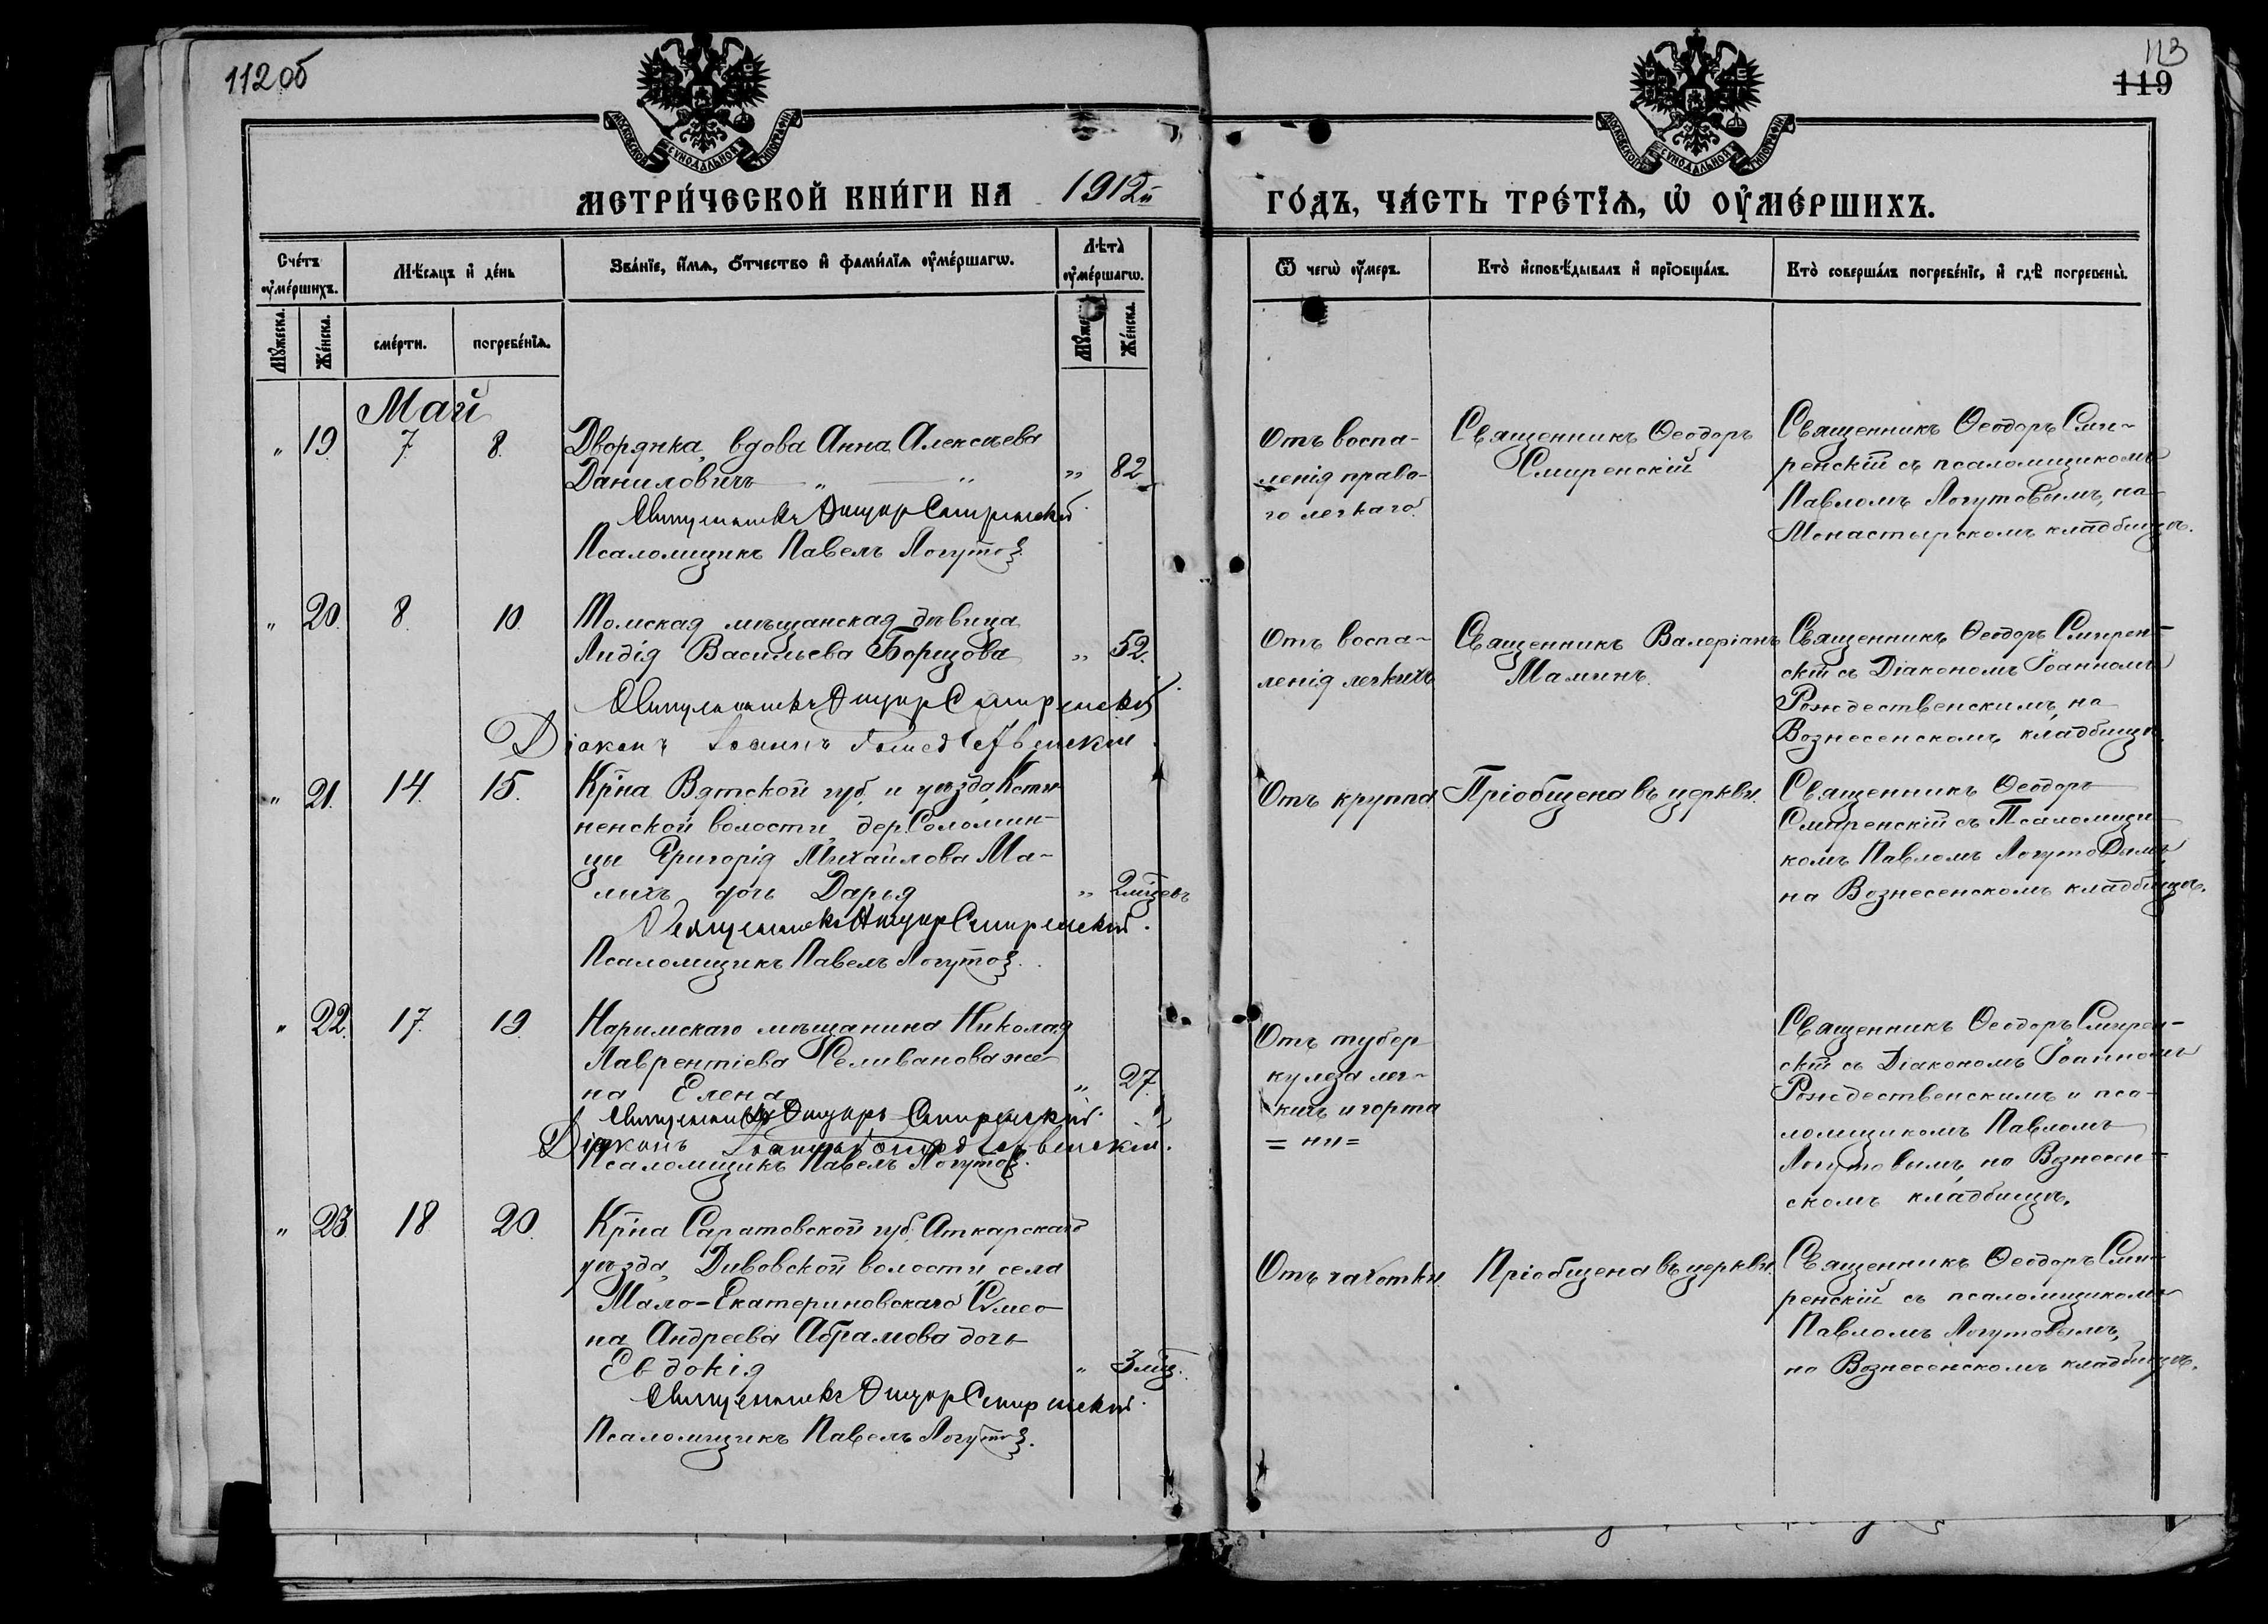 112 об
113
119
МОСКОВСКОЙ СѴНОДАЛЬНОЙ ТИПОГРАФІИ
МОСКОВСКОЙ СѴНОДАЛЬНОЙ ТИПОГРАФІИ
МЕТРИ́ЧЕСКОЙ КНИ́ГИ НА 1912й
ГО́ДЪ, ЧА́СТЬ ТРЕ́ТІѦ, Ѡ҆ ОУ҆МЕ́РШИХЪ.
Сче́тъ оу҆ме́ршихъ.
Мѣ́сяцъ и҆ де́нь
Зва́нїе, и҆́мѧ, ѻ҆́тчество и҆ фами́лїѧ оу҆ме́ршагѡ.
Лѣ́та оу҆ме́ршагѡ.
Ѿ чегѡ̀ оу҆́меръ.
Кто̀ и҆сповѣ́дывалъ и҆ прїѻбща́лъ.
Кто̀ соверша́лъ погребе́нїе, и҆ гдѣ̀ погребены̀.
Мꙋ́жеска.
Же́нска.
сме́рти.
погребе́нїѧ.
Мꙋ́же
Же́нска.
Май
" 19 7. 8.
Дворянка, вдова Анна Алексѣева
Даниловичъ " " " 82
Священникъ Ѳеодоръ Смиренскій.
Псаломщикъ Павелъ Логутов
Отъ воспа-
ленія право-
го легкаго.
Священникъ Ѳеодоръ
Смиренскій
Священникъ Ѳеодоръ Сми-
ренскій съ псаломщикомъ
Павломъ Логутовымъ, на
Монастырскомъ кладбищѣ.
" 20. 8. 10.
Томская мѣщанская дѣвица
Лидія Васильева Борщова " 52.
Священникъ Ѳеодоръ Смиренскій.
Діаконъ Іоаннъ Рождественскій
Отъ воспа-
ленія легкихъ
Священникъ Валеріанъ
Маминъ.
Священникъ Ѳеодоръ Смирен-
скій съ Діакономъ Іоанномъ
Рождественскимъ, на
Вознесенскомъ кладбищѣ.
" 21. 14. 15.
Кр̄на Вятской губ. и уѣзда,
ненской волости, дер. Соломин-
цы Григорія Михайлова Ма-
лихъ дочь Дарья " 2 мѣсцевъ
Священникъ Ѳеодоръ Смиренскій.
Псаломщикъ Павелъ Логутов.
Отъ круппа
Пріобщена въ церкви.
Священникъ Ѳеодоръ
Смиренскій съ Псаломщи-
комъ Павломъ Логутовымъ,
на Вознесенскомъ кладбищѣ.
" 22. 17. 19.
Нарымскаго мѣщанина Николая
Лаврентіева Селиванова же-
на Елена " 27.
Священникъ Ѳеодоръ Смиренскій.
Діаконъ Іоаннъ Рождественскій.
Псаломщикъ Павелъ Логутов.
Отъ тубер-
кулеза лег-
кихъ и горта
= ни =
Священникъ Ѳеодоръ Смирен-
скій съ Діакономъ Іоанномъ
Рождественскимъ и пса-
ломщикомъ Павломъ
Логутовымъ, на Вознесен-
скомъ кладбищѣ.
" 23. 18 20.
Кр̄на Саратовской губ. Аткарскаго
уѣзда, Дивовской волости села
Мало-Екатериновскаго Сѵмео-
на Андреева Абрамова дочь
Евдокія " 3 мѣс.
Священникъ Ѳеодоръ Смиренскій.
Псаломщикъ Павелъ Логутов.
Отъ чахотки
Пріобщена въ церкви.
Священникъ Ѳеодоръ Сми-
ренскій съ псаломщикомъ
Павломъ Логутовымъ,
на Вознесенскомъ кладбищѣ.